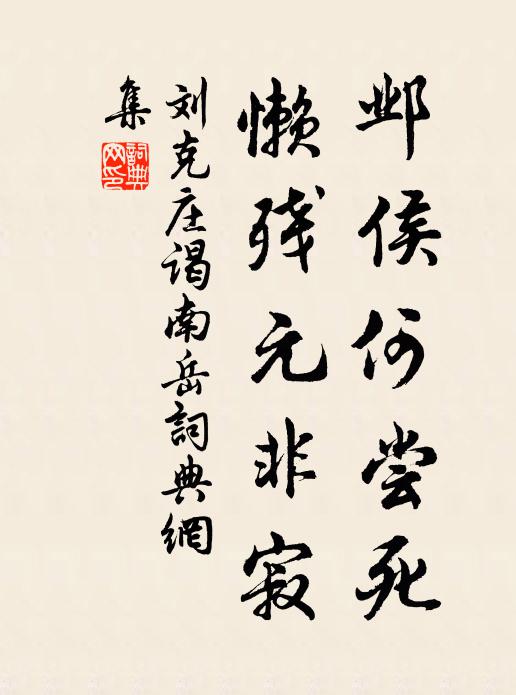 邺侯何尝死
懒残元非寂
刘克庄谒南岳詞典網
集
詞典網印